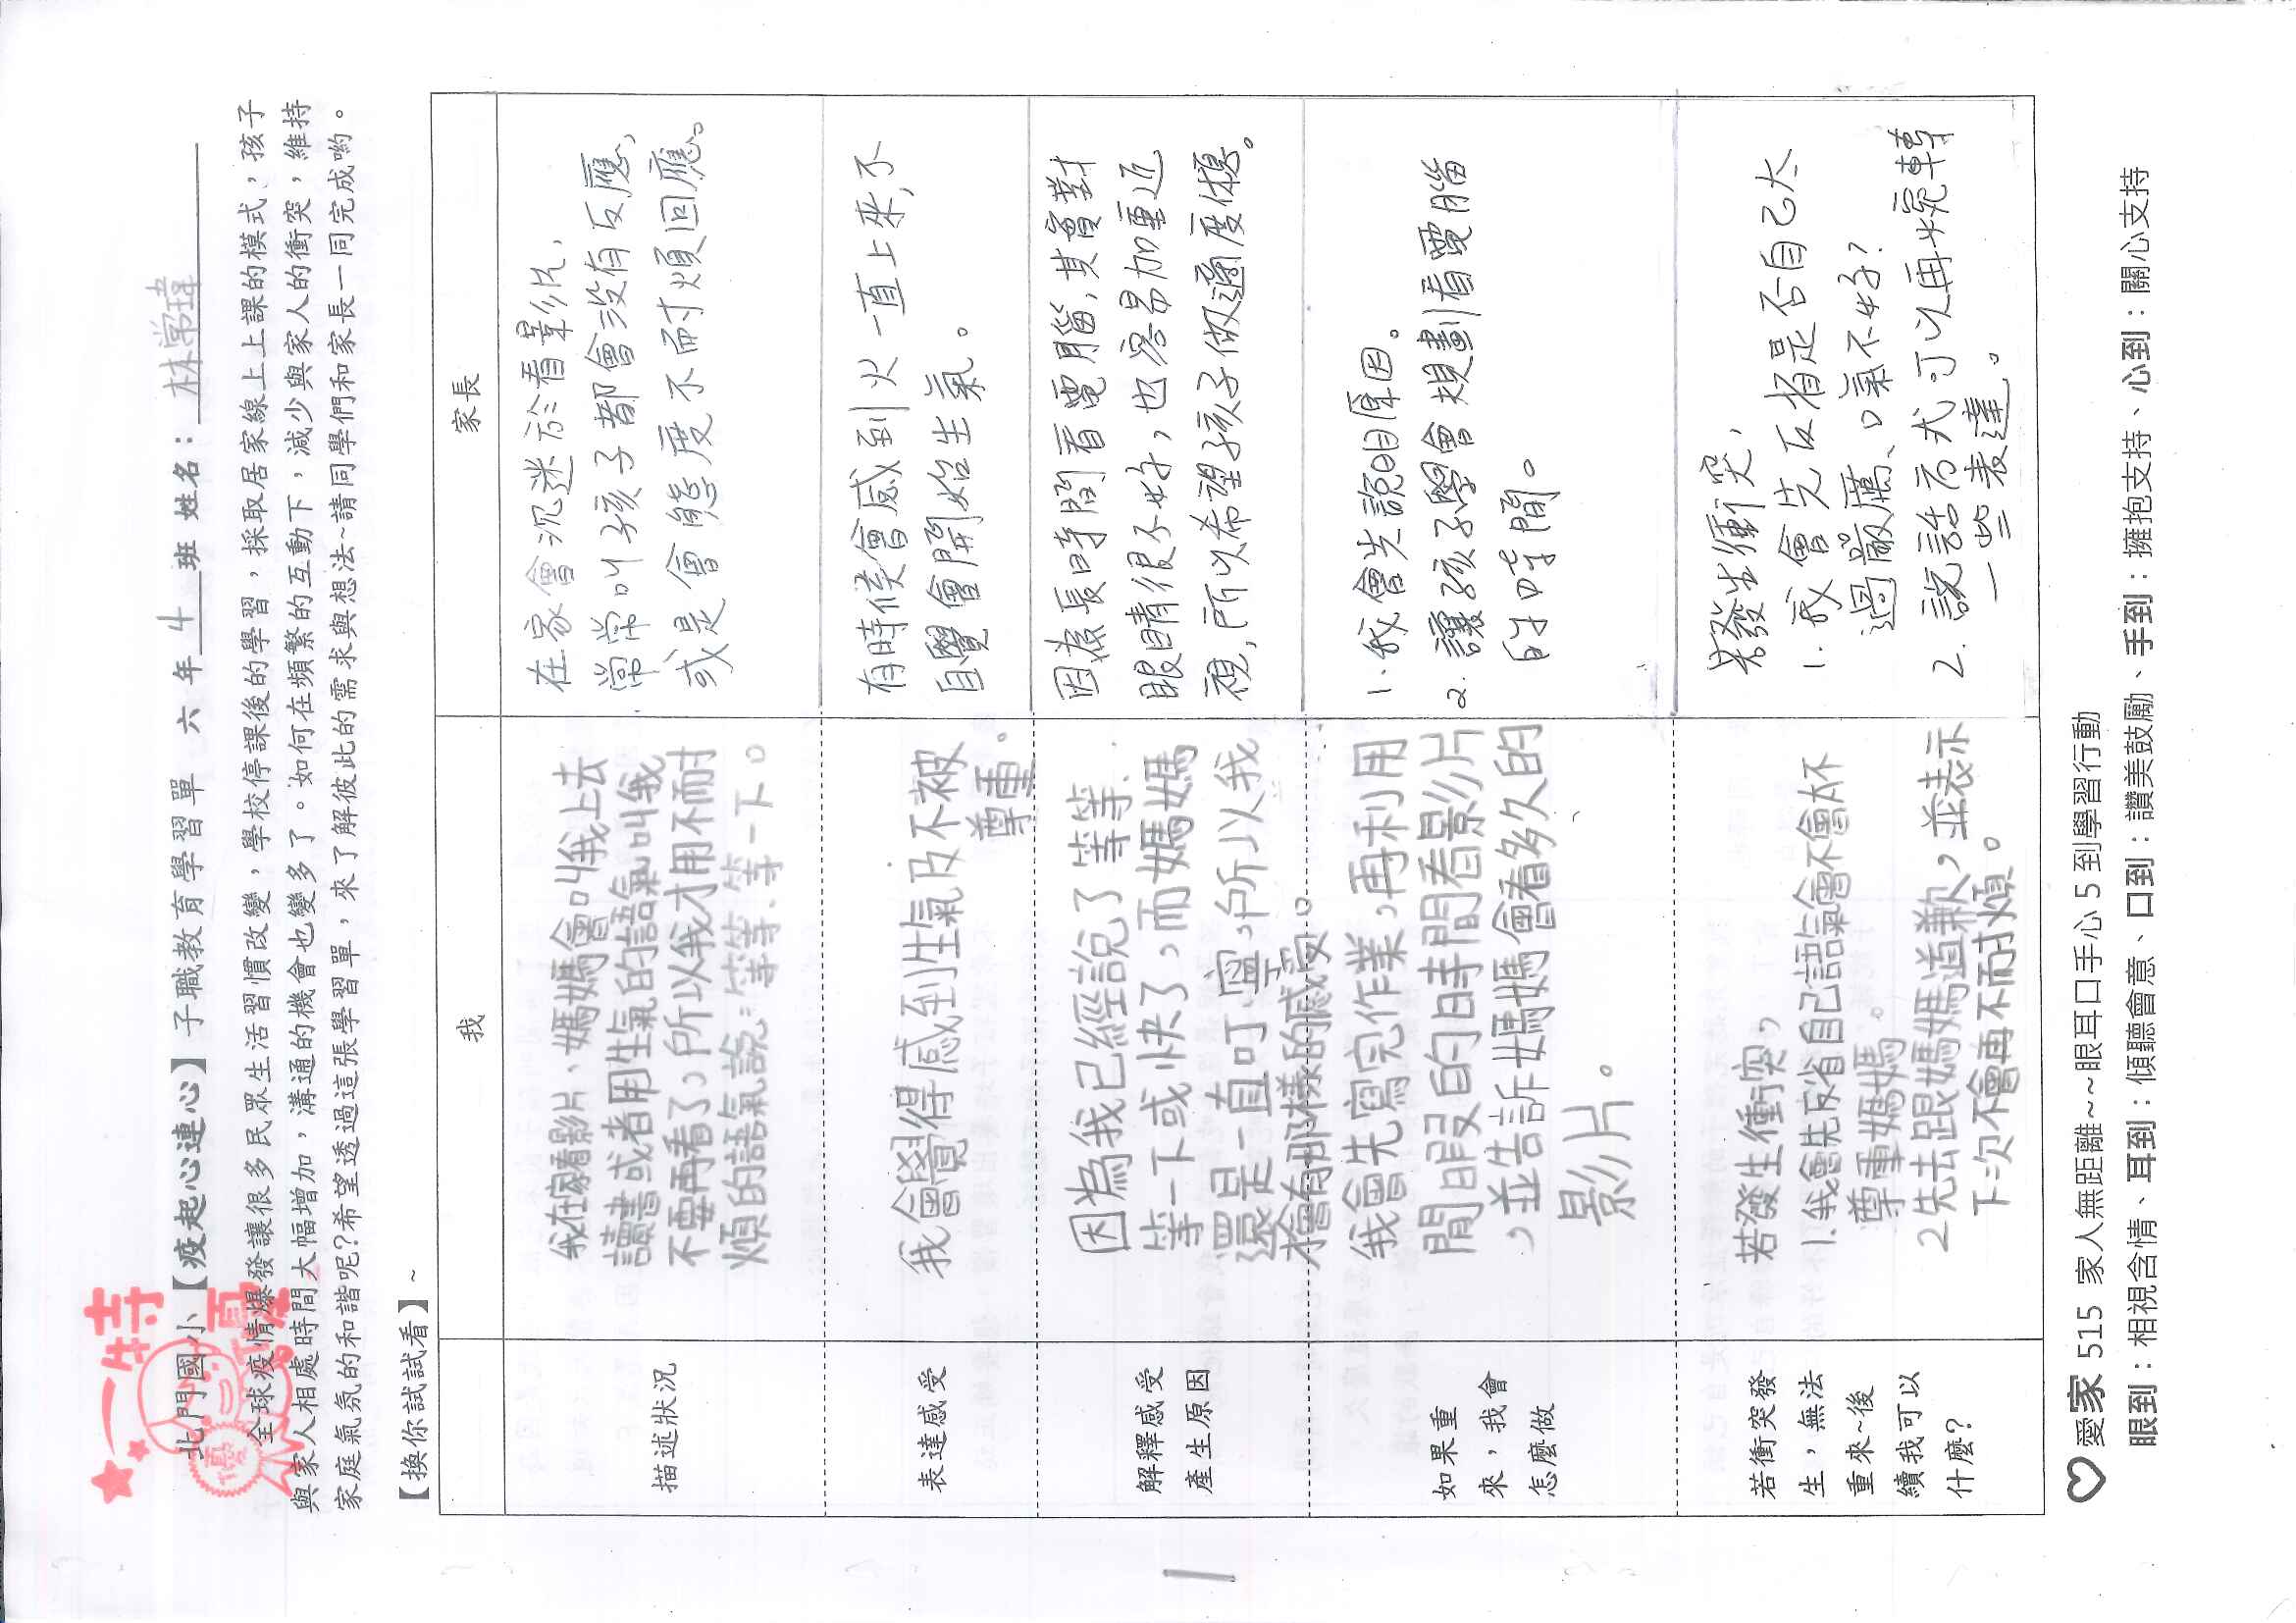 特
優
優
北門國小【疫起心連心】子職教育學習單 六 年 4 班 姓名：林常瑋
全球疫情爆發讓很多民眾生活習慣改變，學校停課後的學習，採取居家線上上課的模式，孩子
與家人相處時間大幅增加，溝通的機會也變多了。如何在頻繁的互動下，減少與家人的衝突，維持
家庭氣氛的和諧呢?希望透過這張學習單，來了解彼此的需求與想法~請同學們和家長一同完成喲。
【換你試試看】~
我
家長
描述狀況
我在家看影片、媽媽會叫我上去
讀書或者用生氣的語氣叫我
不要再看了，所以我才用不耐
煩的語氣說：等等、等一下。
在家會沉迷於看影片，
常常叫孩子都會沒有反應，
或是會態度不耐煩回應。
表達感受
我會覺得感到生氣及不被
尊重。
有時候會感到火一直上來，不
自覺會開始生氣。
解釋感受
產生原因
因為我已經說了等等、
等一下或快了，而媽媽
還是一直叮嚀，所以我
才會有那樣的感受。
因為長時間看電腦，其實對
眼睛很不好，也容易加重近
視，所以希望孩子做適度休息。
如果重
來，我會
怎麼做
我會先寫完作業，再利用
閒暇的時間看影片
，並告訴媽媽會看多久的
影片。
1. 我會先說明原因。
2. 讓孩子學會規劃看電腦
的時間。
若衝突發
生，無法
重來~後
續我可以
什麼?
若發生衝突，
1.我會先反省自己語氣會不會太不
尊重媽媽。
2.先去跟媽媽道歉，並表示
下次不會再不耐煩。
若發生衝突，
1. 我會先反省是否自己太
過嚴厲、口氣不好？
2. 說話方式可以再婉轉
一些表達。
愛家 515 家人無距離~~眼耳口手心 5 到學習行動
眼到：相視含情、耳到：傾聽會意、口到：讚美鼓勵、手到：擁抱支持、心到：關心支持